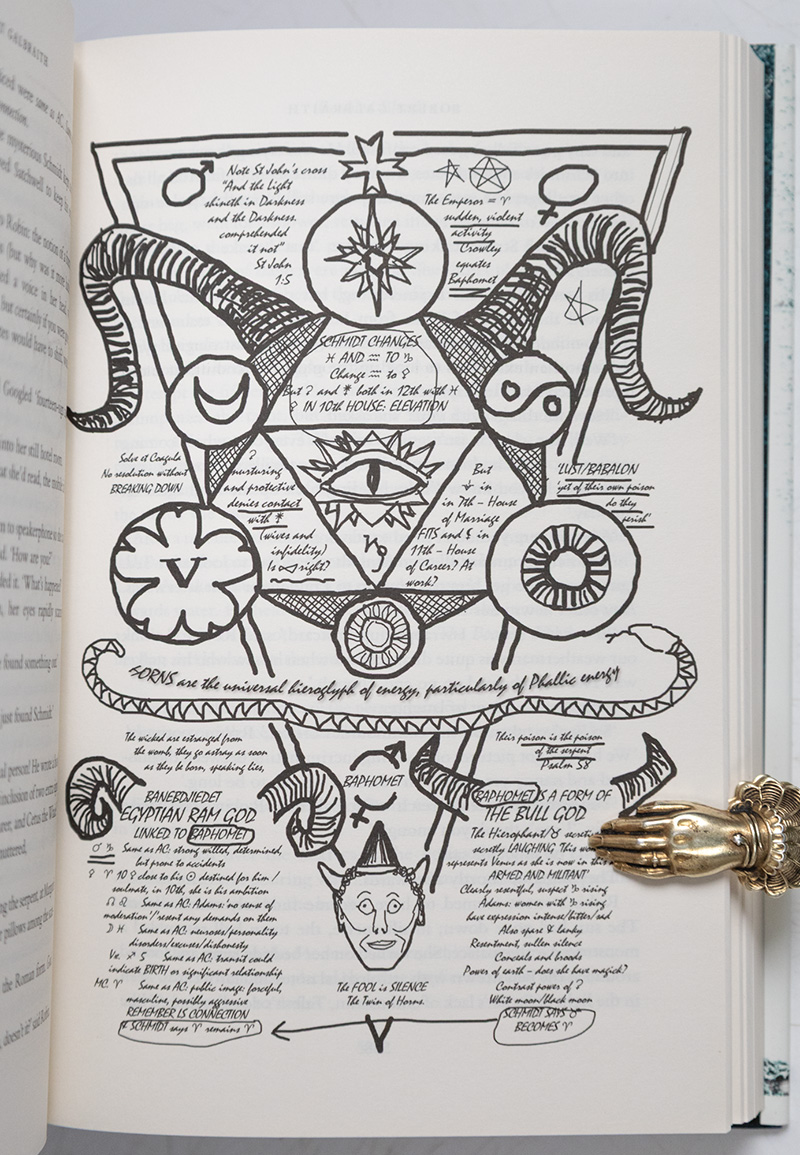 GALBRAITH
Note St John's cross
"And the Light
shineth in Darkness
and the Darkness.
comprehended
it not"
St John
1:5
The Emperor = ♈
sudden, violent
activity
Crowley
equates
Baphomet
SCHMIDT CHANGES
♓ AND ♒ TO ♑
Change ♒ to ♀
But ? and * both in 12th with ♓
♀ IN 10th HOUSE: ELEVATION
Solve et Coagula
No resolution without
BREAKING DOWN
?
nurturing
and protective
denies contact
with *
(wives and
infidelity)
Is right?
♑
But
in
in 7th - House
of Marriage
FITS and in
11th - House
of Career? At
work?
'LUST/BABALON
'yet of their own poison
do they
perish'
V
HORNS are the universal hieroglyph of energy, particularly of Phallic energy
The wicked are estranged from
the womb, they go astray as soon
as they be born, speaking lies,
Their poison is the poison
of the serpent
Psalm 58
BAPHOMET
BANEBDJEDET
EGYPTIAN RAM GOD
LINKED TO BAPHOMET
♂ ♑ Same as AC: strong willed, determined,
but prone to accidents
♀ ♈ 10 ♀ close to his ☉ destined for him /
soulmate, in 10th, she is his ambition
☊ ♌ Same as AC: Adams: 'no sense of
moderation'/'resent any demands on them
D H Same as AC: neuroses/personality
disorders/excuses/dishonesty
Ve. ♐ 5 Same as AC: transit could
indicate BIRTH or significant relationship
MC. ♈ Same as AC: public image: forceful,
masculine, possibly aggressive
REMEMBER IS CONNECTION
If SCHMIDT says ♈ remains ♈
BAPHOMET IS A FORM OF
THE BULL GOD
The Hierophant/♉
secretly LAUGHING This
represents Venus as she is now in this
ARMED AND MILITANT'
Clearly resentful, suspect ♑ rising
Adams: women with ♑ rising
have expression intense/bitter/sad
Also spare & lanky
Resentment, sullen silence
Conceals and broods
Power of earth - does she have magick?
Contrast power of ?
White moon/black moon
SCHMIDT SAYS ♉
BECOMES ♈
The FOOL is SILENCE
The Twin of Horns.
V